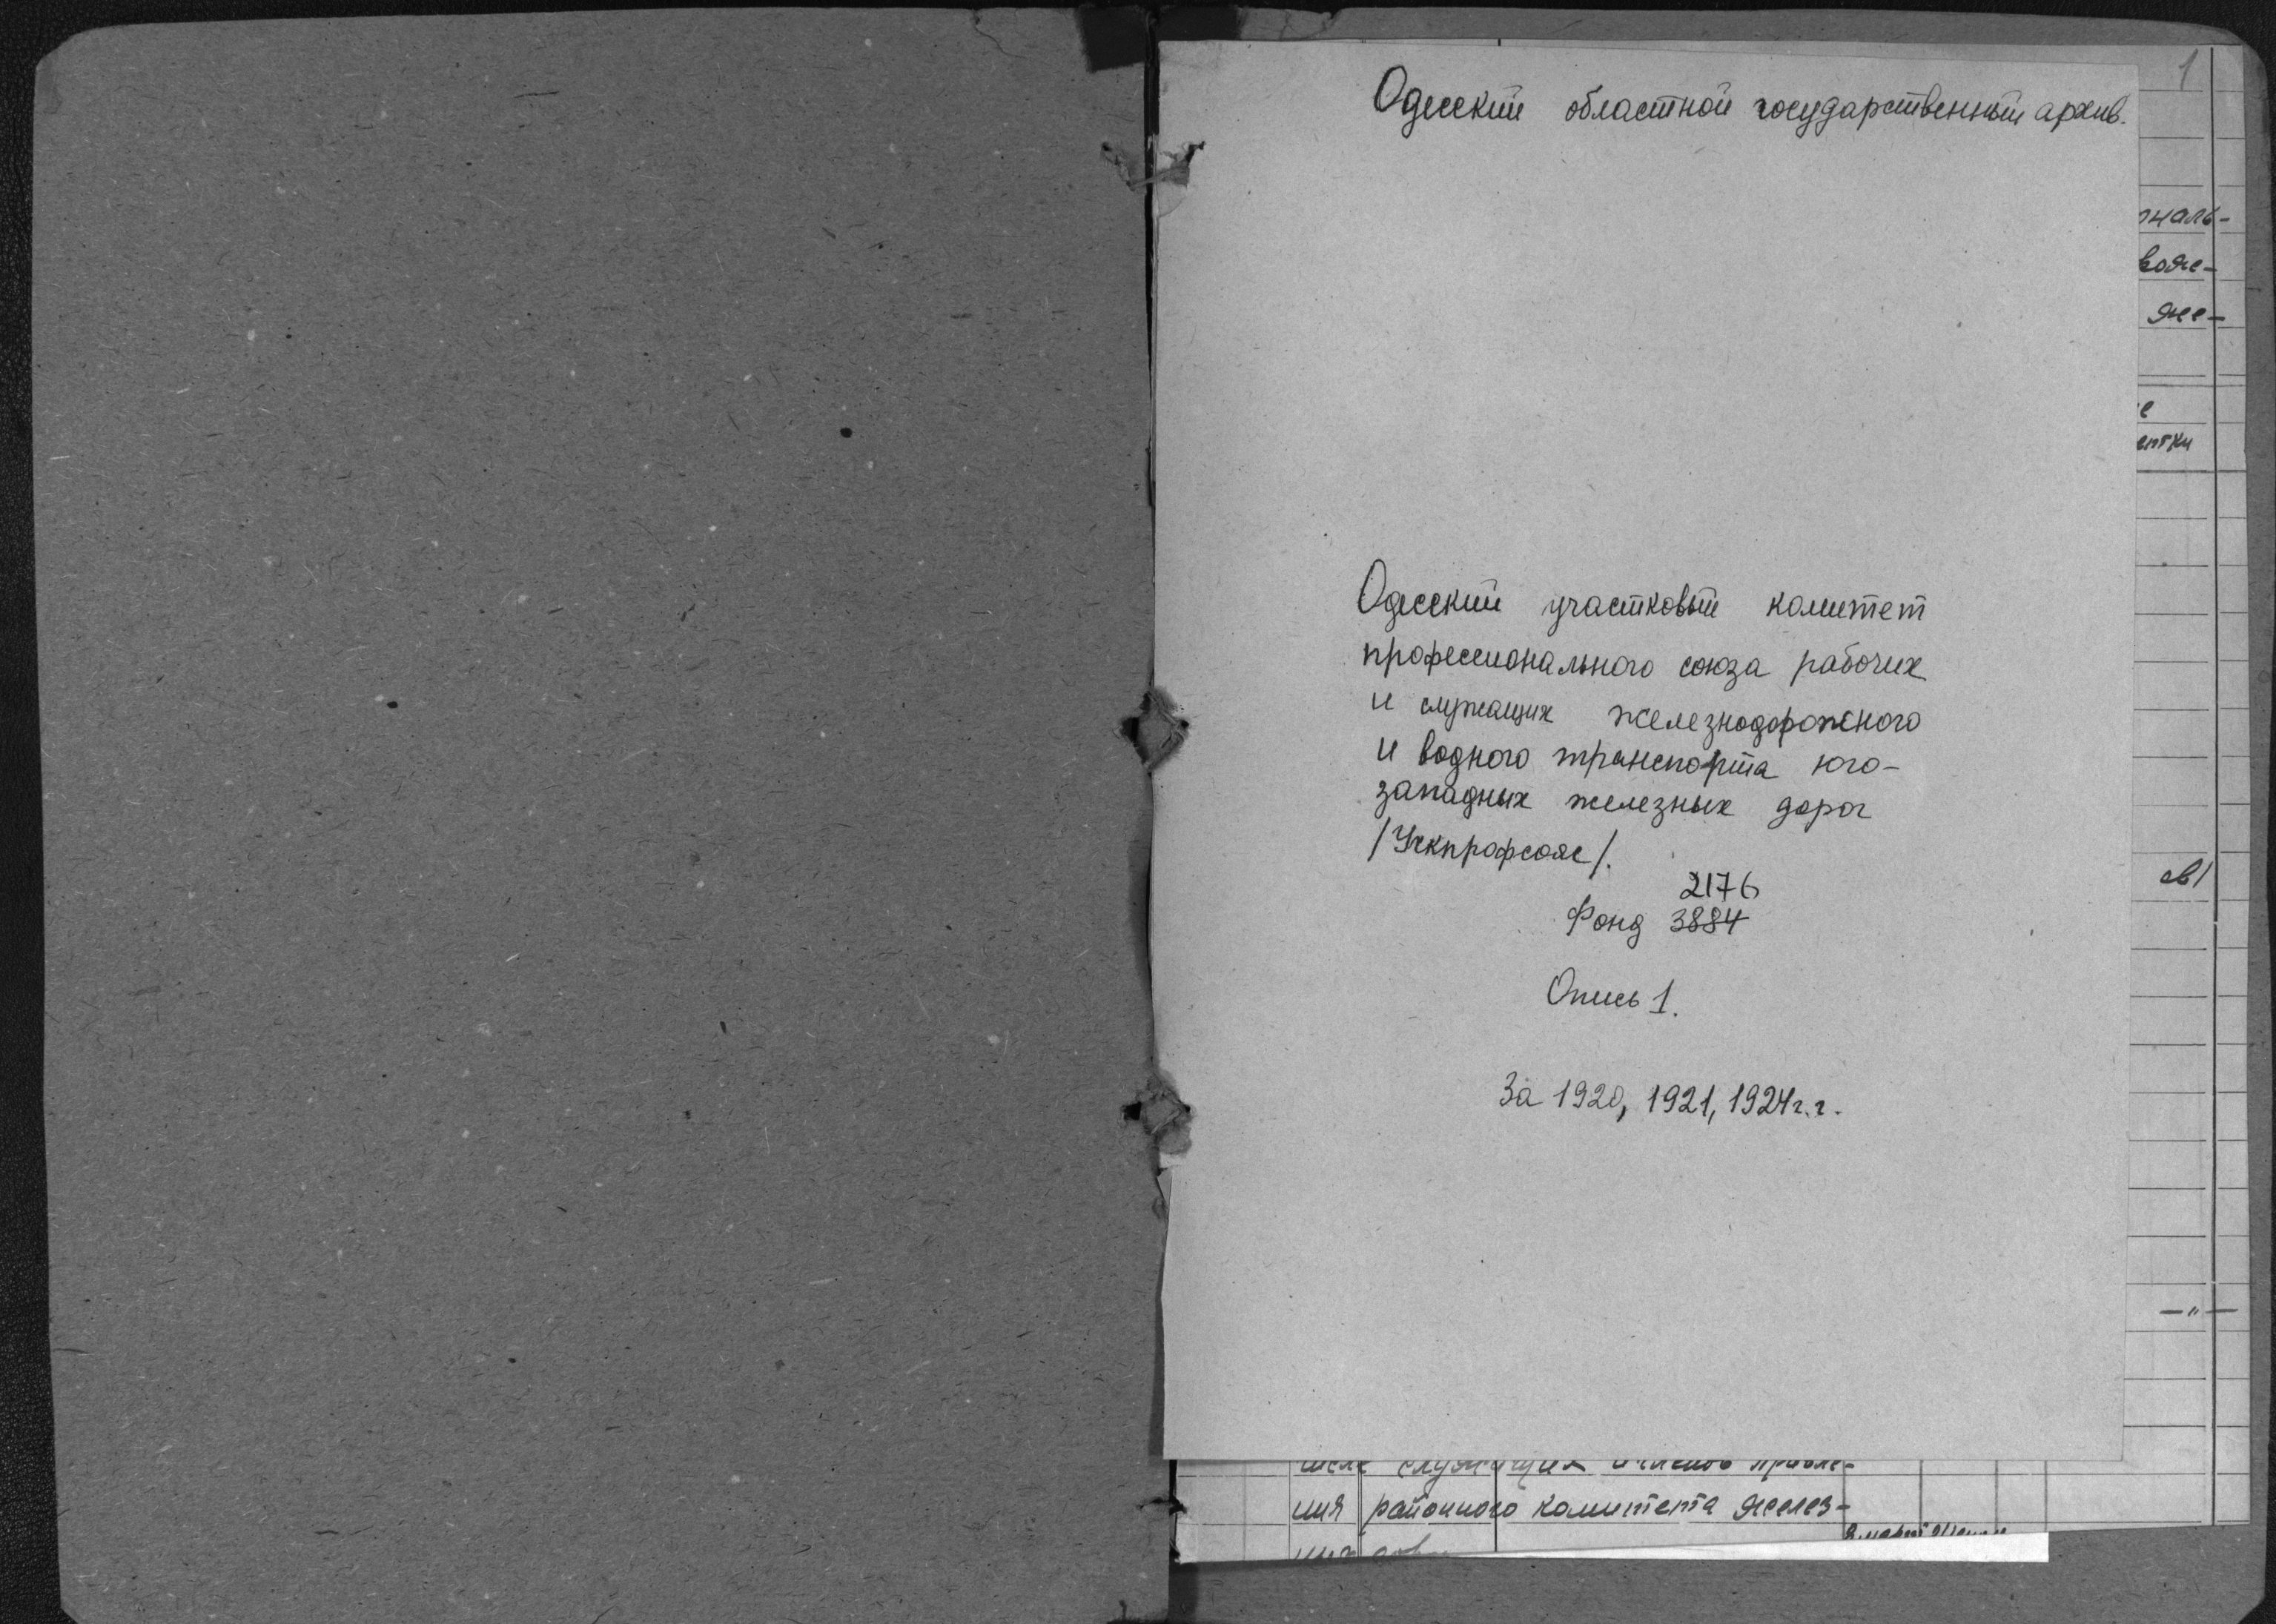 1
Одесский областной государственный архив.
Одесский участковый комитет
профессионального союза рабочих
и служащих железнодорожного
и водного транспорта юго-
западных железных дорог
/Учкпрофсож/.
2176
Фонд 3884
Опись 1.
За 1920, 1921, 1924 г.г.
ния районного комитета желез-